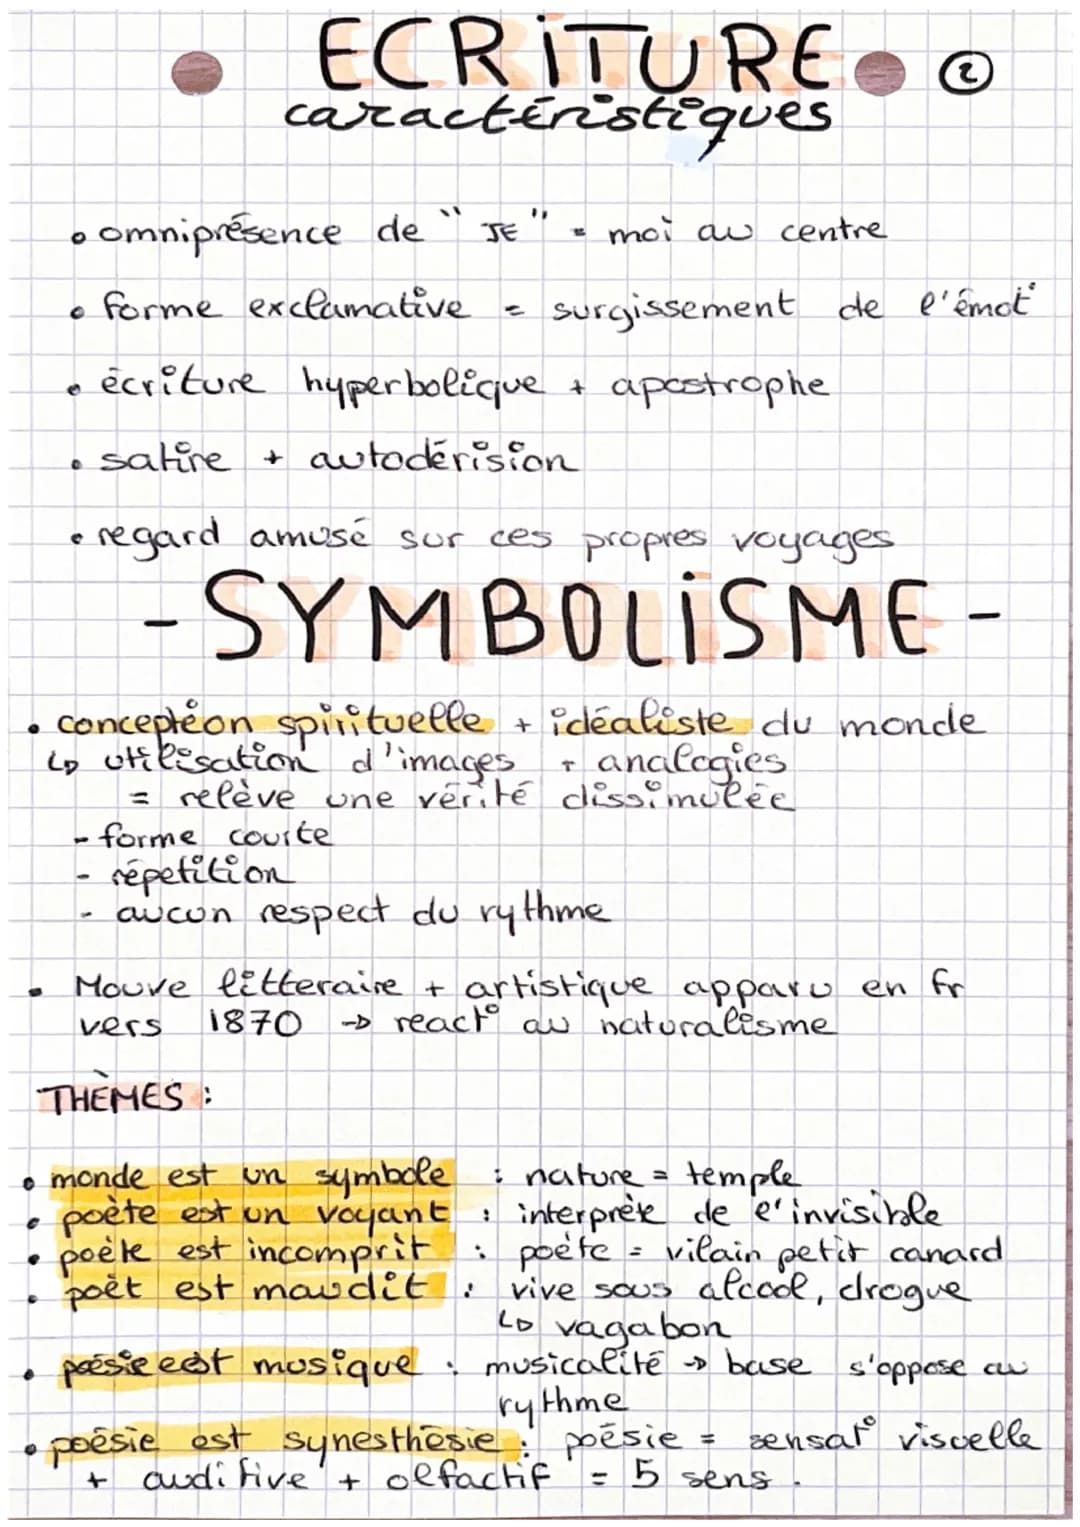 ECRITURE ②
caractéristiques
• omniprésence de "JE" = moi au centre
• forme exclamative = surgissement de l'émot°
• écriture hyperbolique + apostrophe
• satire + autodérision
• regard amusé sur ces propres voyages
- SYMBOLISME -
• conception spirituelle + idéaliste du monde
↳ utilisation d'images + analogies
= relève une vérité dissimulée
- forme courte
- répetition
- aucun respect du rythme
• Mouve litteraire + artistique apparu en fr
vers 1870 → react° au naturalisme
THÈMES :
• monde est un symbole : nature = temple
• poète est un voyant : interprète de l'invisible
• poète est incomprit : poéte = vilain petit canard
• poèt est maudit : vive sous alcool, drogue
↳ vagabon
• poésie est musique : musicalité → base s'oppose au
rythme
• poésie est synesthésie : poésie = sensat° visuelle
+ auditive + olfactif = 5 sens.